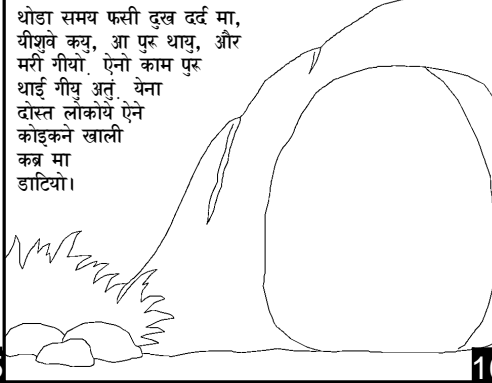 थोडा समय फसी दुख दर्द मा,
यीशुवे कयु, आ पुरू थायु, और
मरी गीयो. ऐनो काम पुरू
थाई गीयु अतुं. येना
दोस्त लोकोये ऐने
कोइकने खाली
कब्र मा
डाटियो।